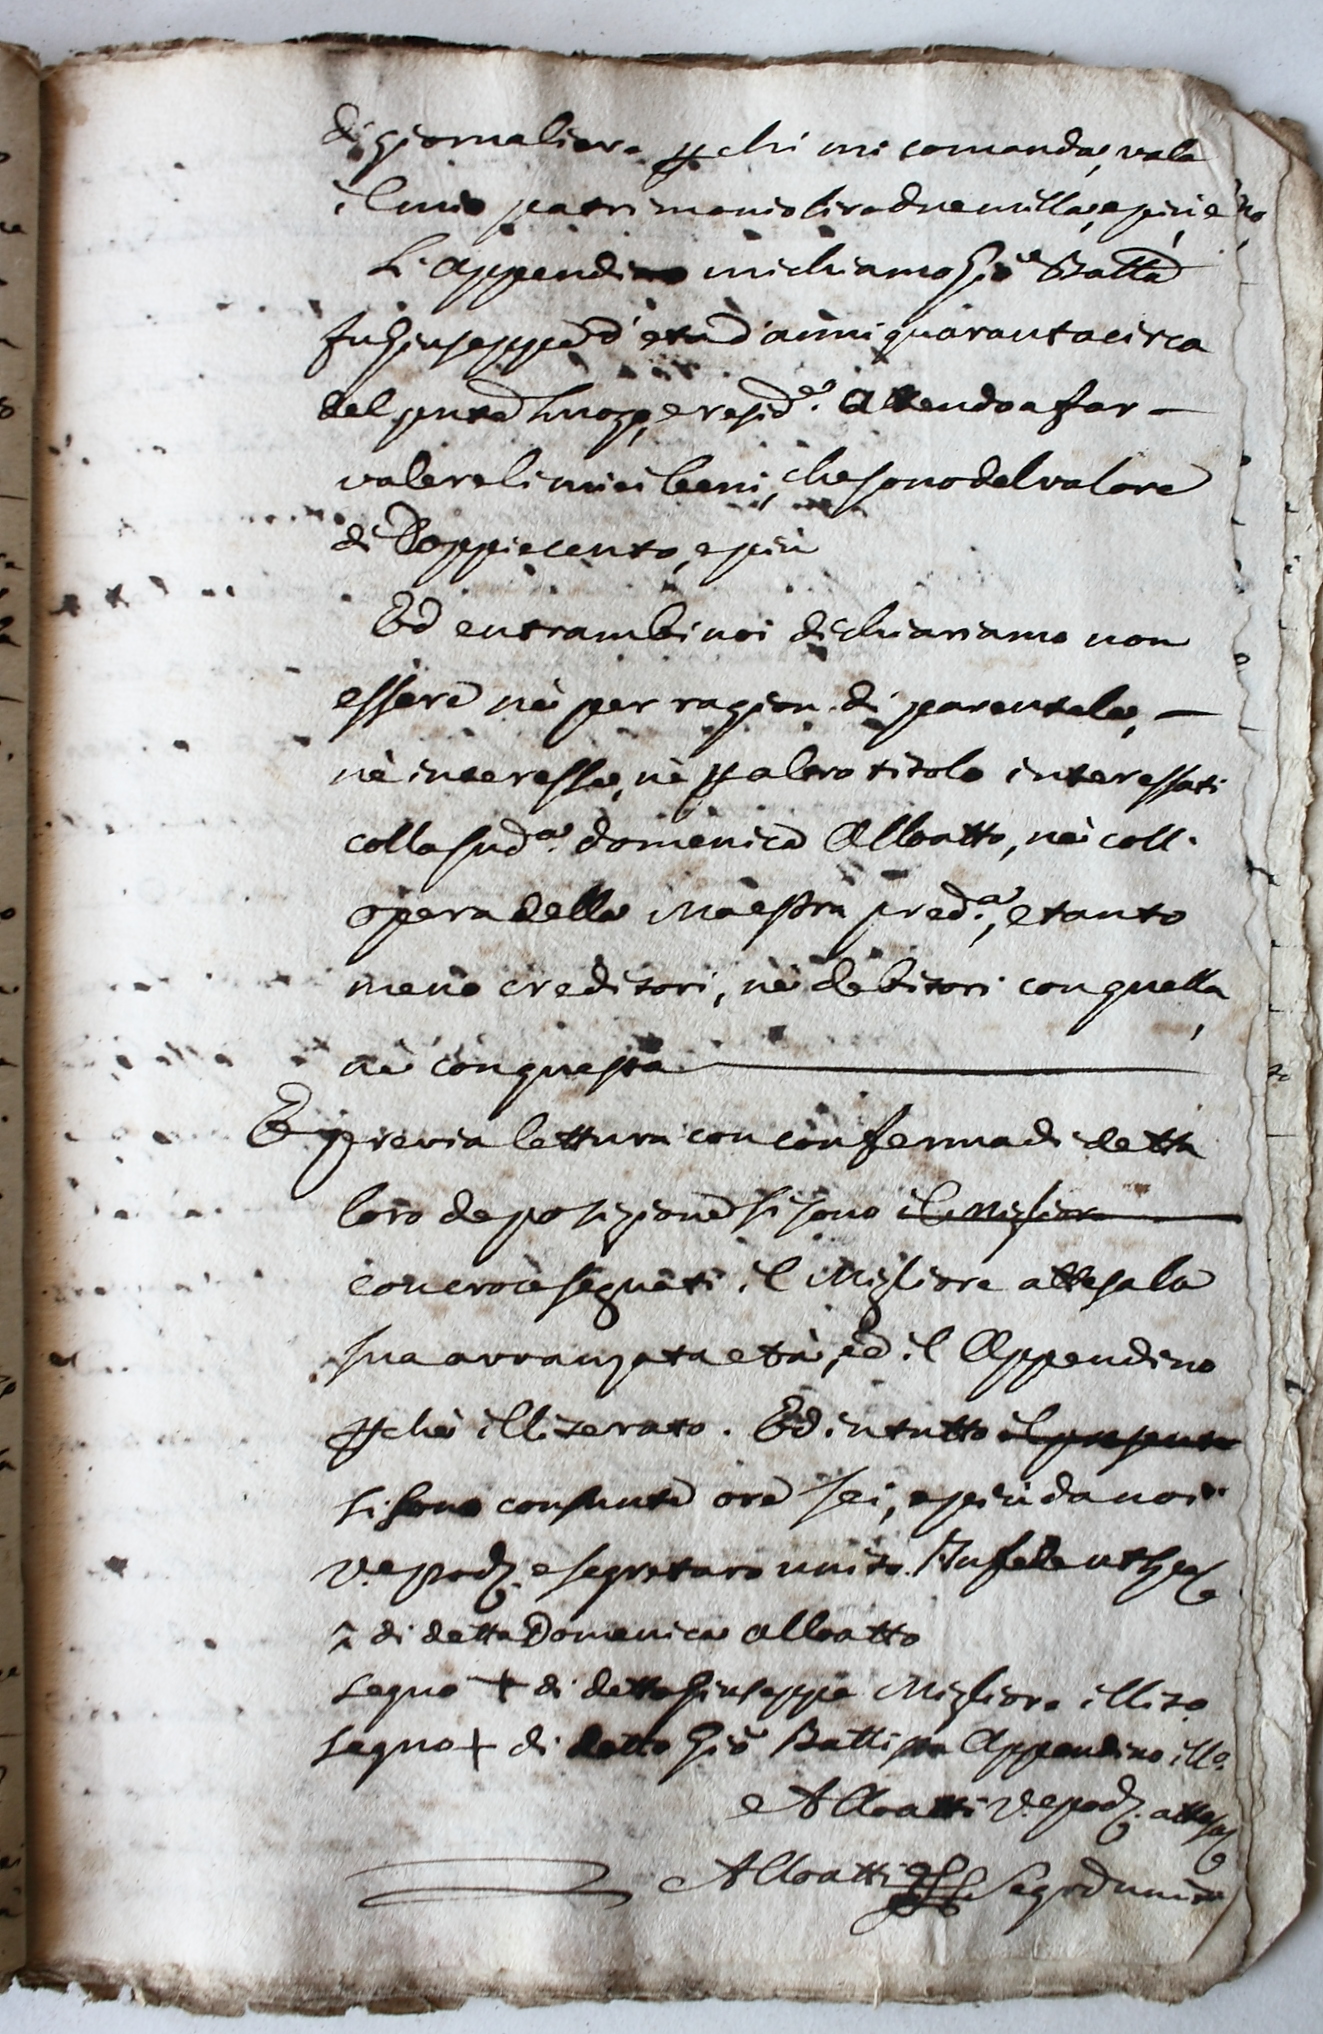 di giornaliere p chi mi comanda, vale
il mio patrimonio lire due milla, e più, e
Li Appendino mi chiamo Gio Batta
fu Giuseppe d'età d'anni quaranta circa
del pnte luogo, e resid.e Attendo a far —
valere li miei beni, che sono del valore
di Doppie cento, e più
Ed entrambi noi dichiariamo non
essere nè per ragion di parentela, —
nè interesse, nè p altro titolo interessati
colla sud.a Domenica Alloatto, nè coll.
opera della Maestra pred.a, e tanto
meno creditori, nè debitori con quella,
nè con questa
E previa lettura con conferma di detta
loro deposizione si sono il Migliore
con croce segnati il Migliore attesa la
sua avvanzata età, ed il Appendino
p chè illiterato. Ed in tutto il presente
si sono consunte ore sei, e più da noi
V.e pod. e segretaro unito. In fede
di detta Domenica Alloatto
Segno + di detto Giuseppe Migliore illito
Segno + di detto Gio Battista Appendino ill.o
Alloatti V.e pod.
Alloatti Segro d unito